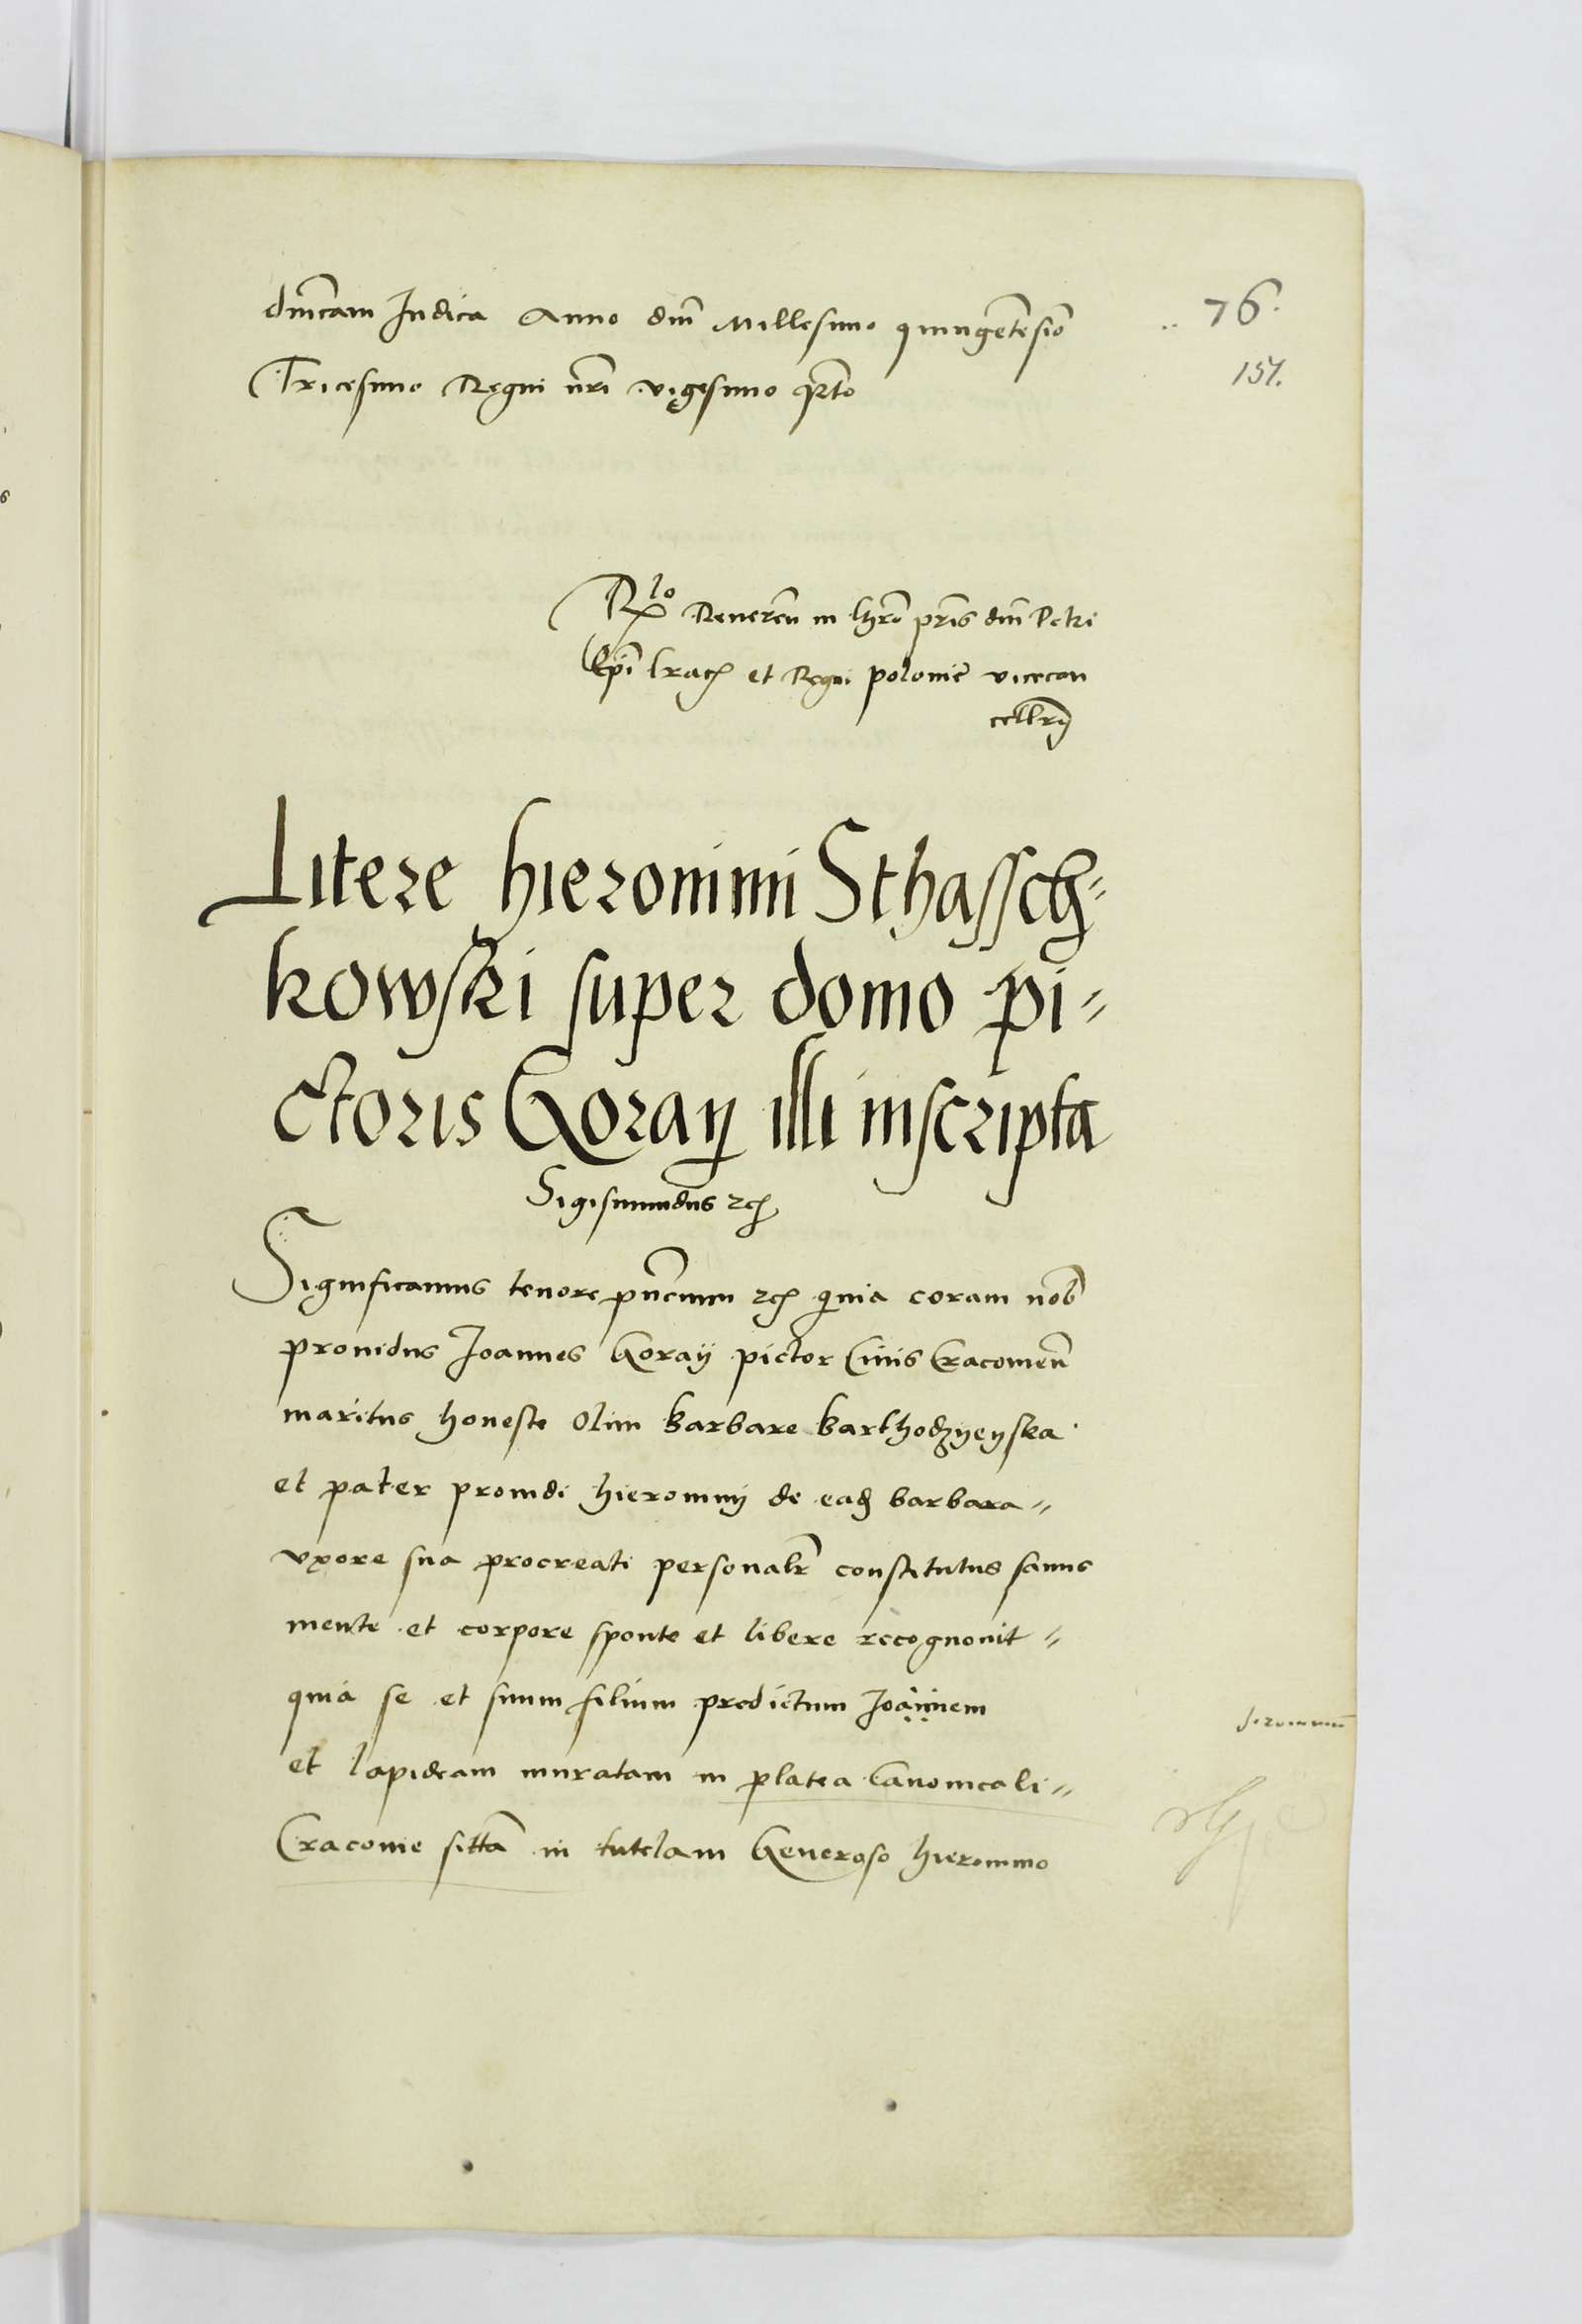 dnicam Indica Anno dni Millesimo quingentesio
76.
Tricesimo Regni nri vigesimo qrto
151.
Rlo Reveren in Chro pris dni Petri
Epi Crac et Regni polonie vicecan
cellrij
Litere hieronimi Sthassch=
kowski super domo pi=
ctoris Goraij illi inscripta
Sigismundus rc
Significamus tenore pncium rc quia coram nob
providus Joannes Goraij pictor Civis Cracovien
maritus honeste Olim Barbare Barthodzyeyska
et pater providi hieronimij de ead barbara=
vxore sua procreati personalr constitutus sanus
mente et corpore sponte et libere recognovit=
quia se et suum filium predictum Joannem
Jeronimu
et lapideam muratam in platea Canonicali=
Cracovie sitta in tutelam Generoso hieronimo